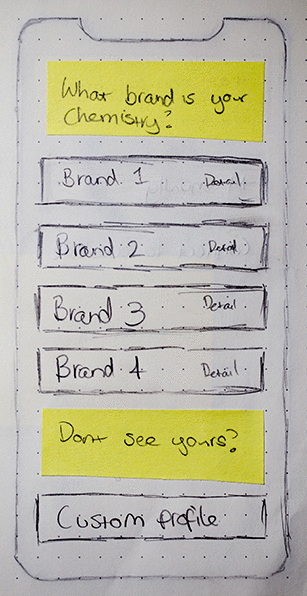 What brand is your
Chemistry?
Brand 1 Detail
Brand 2 Detail
Brand 3 Detail
Brand 4 Detail
Dont see yours?
Custom profile